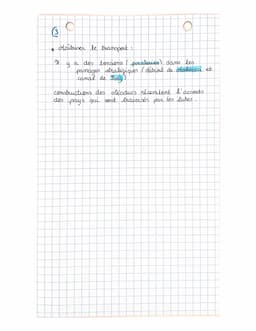 (3
• Maîtriser le transport :
Il y a des tensions (pirateries) dans les
passages stratégiques (détroit de Malacca et
canal de Suez)
constructions des oléoducs nécessitent l'accords
des pays qui sont traversés par les tubes.